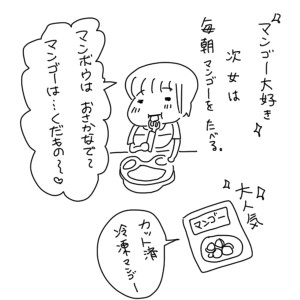 マンゴー大好き
次女は
毎朝マンゴーをたべる。
マンボウは おさかなで〜
マンゴーは…くだもの〜♡
大人気
マンゴー
カット済
冷凍マンゴー